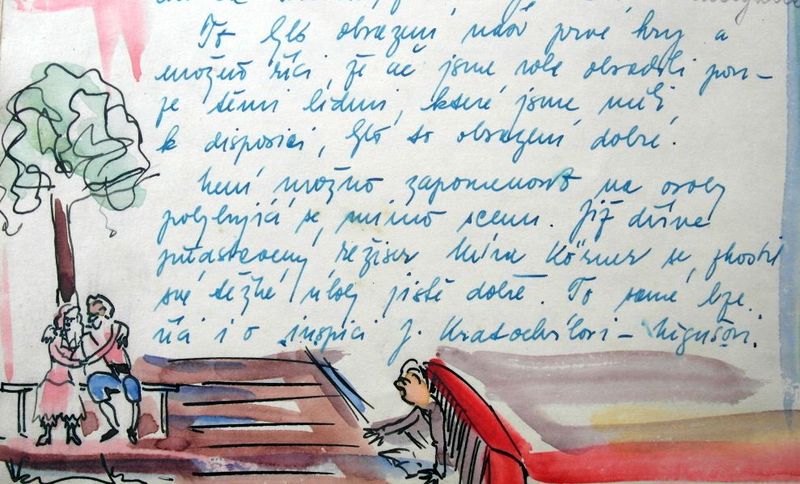 To bylo obsazení naší prvé hry a
možno říci, že ač jsme role obsadili pou-
ze těmi lidmi, které jsme měli
k disposici, bylo to obsazení dobré.
Není možno zapomenout na osoby
pohybující se mimo scenu. Již dříve
představený režiser Míra Körner se zhostil
své těžké úlohy jistě dobře. To samé lze
říci i o inspici J. Kratochvílovi -